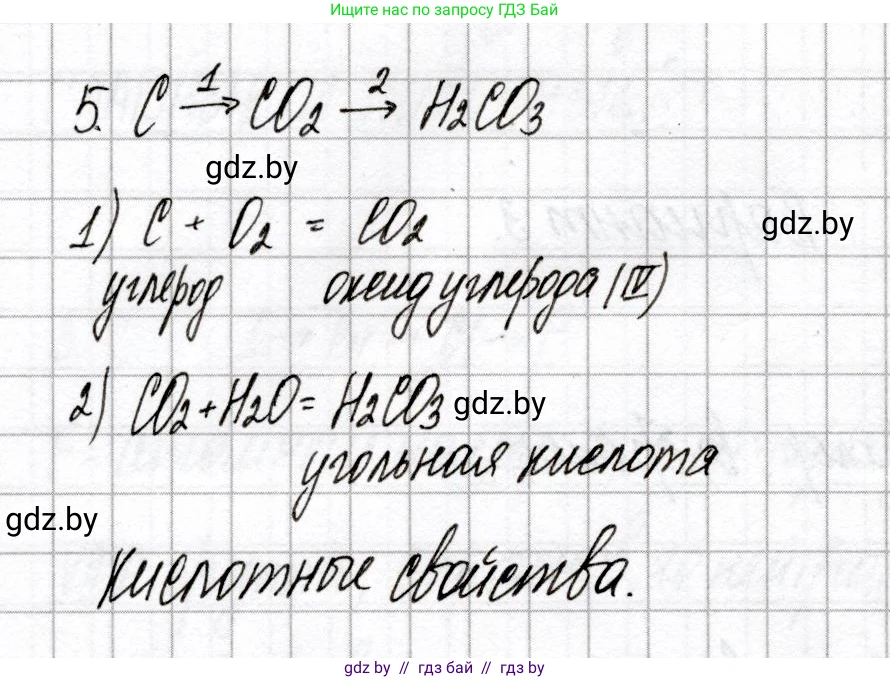 Ищите нас по запросу ГДЗ Бай
5. C 1→ CO2 2→ H2CO3
gdz.by
1) C + O2 = CO2
gdz.by
углерод оксид углерода (IV)
2) CO2+H2O= H2CO3 gdz.by
угольная кислота
gdz.by
Кислотные свойства.
gdz.by // гдз бай // гдз by